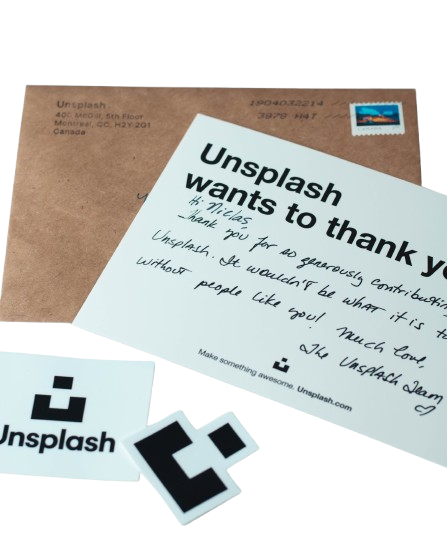 Unsplash
400 McGill, 5th Floor
Montreal, QC, H2Y 2G1
Canada
1904032214
3870 HAT
Unsplash
wants to thank yo
Hi Niclas,
Thank you for so generously contributing
Unsplash. It wouldn't be what it is to
without people like you! Much Love,
The Unsplash Team
Make something awesome. Unsplash.com
Unsplash